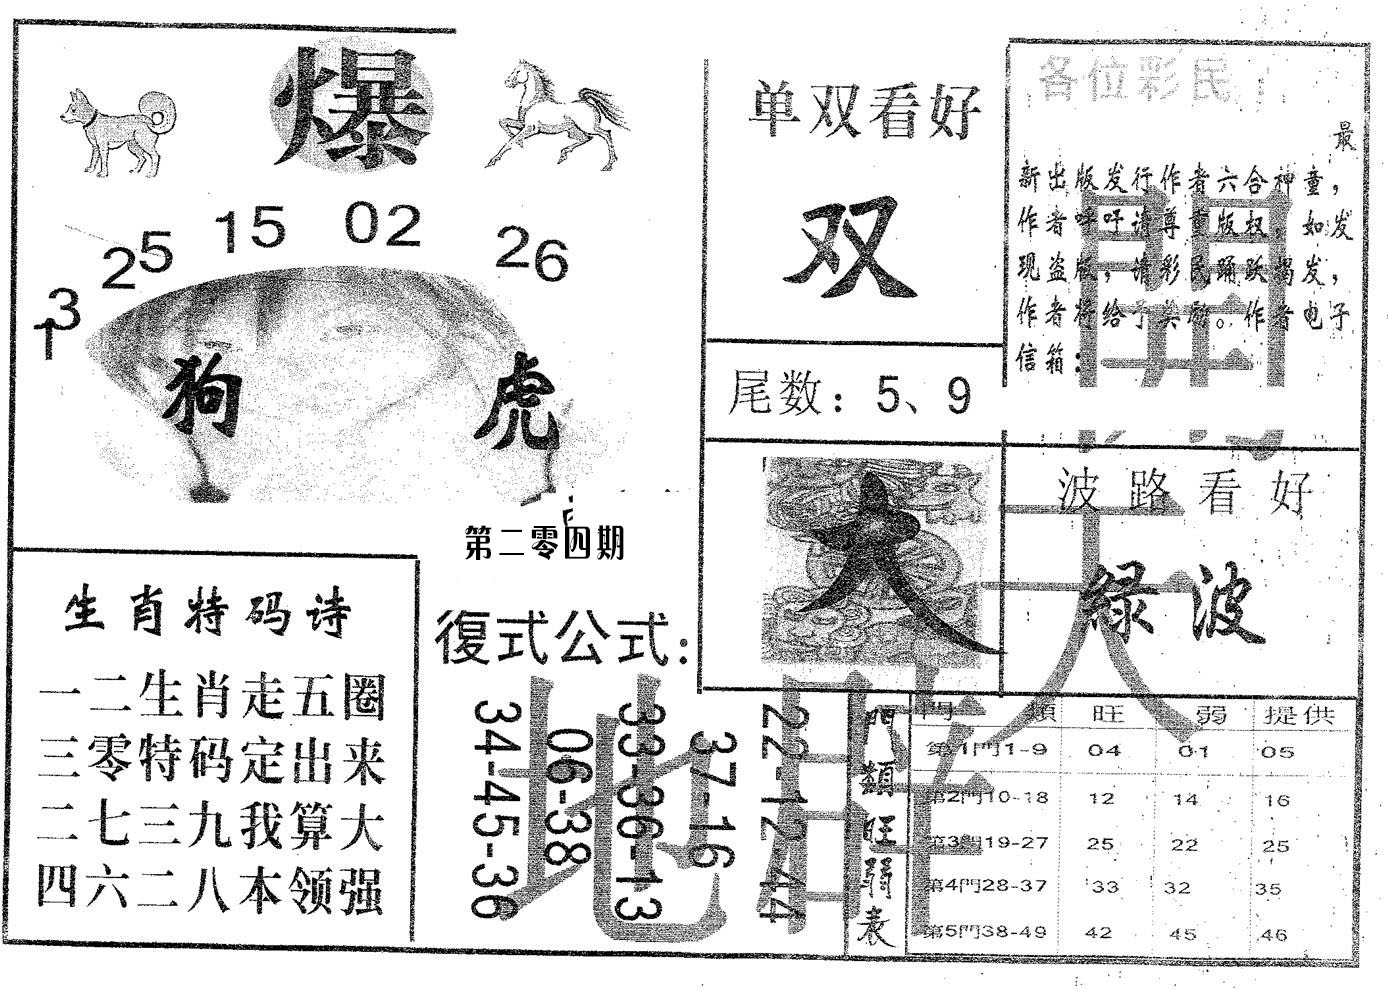 爆
13 25 15 02 26
狗 虎
第二零四期
单双看好
双
尾数：5、9
各位彩民：
最
新出版发行作者六合神童，
作者呼吁请尊重版权，如发
现盗版，请彩民踊跃揭发，
作者将给予奖励。作者电子
信箱：
大
波路看好
绿波
生肖特码诗
一二生肖走五圈
三零特码定出来
二七三九我算大
四六二八本领强
復式公式：
34-45-36
06-38
33-36-13
37-16
22-12-44
門類旺弱表
門類 旺 弱 提供
第1門1-9 04 01 05
第2門10-18 12 14 16
第3門19-27 25 22 25
第4門28-37 33 32 35
第5門38-49 42 45 46